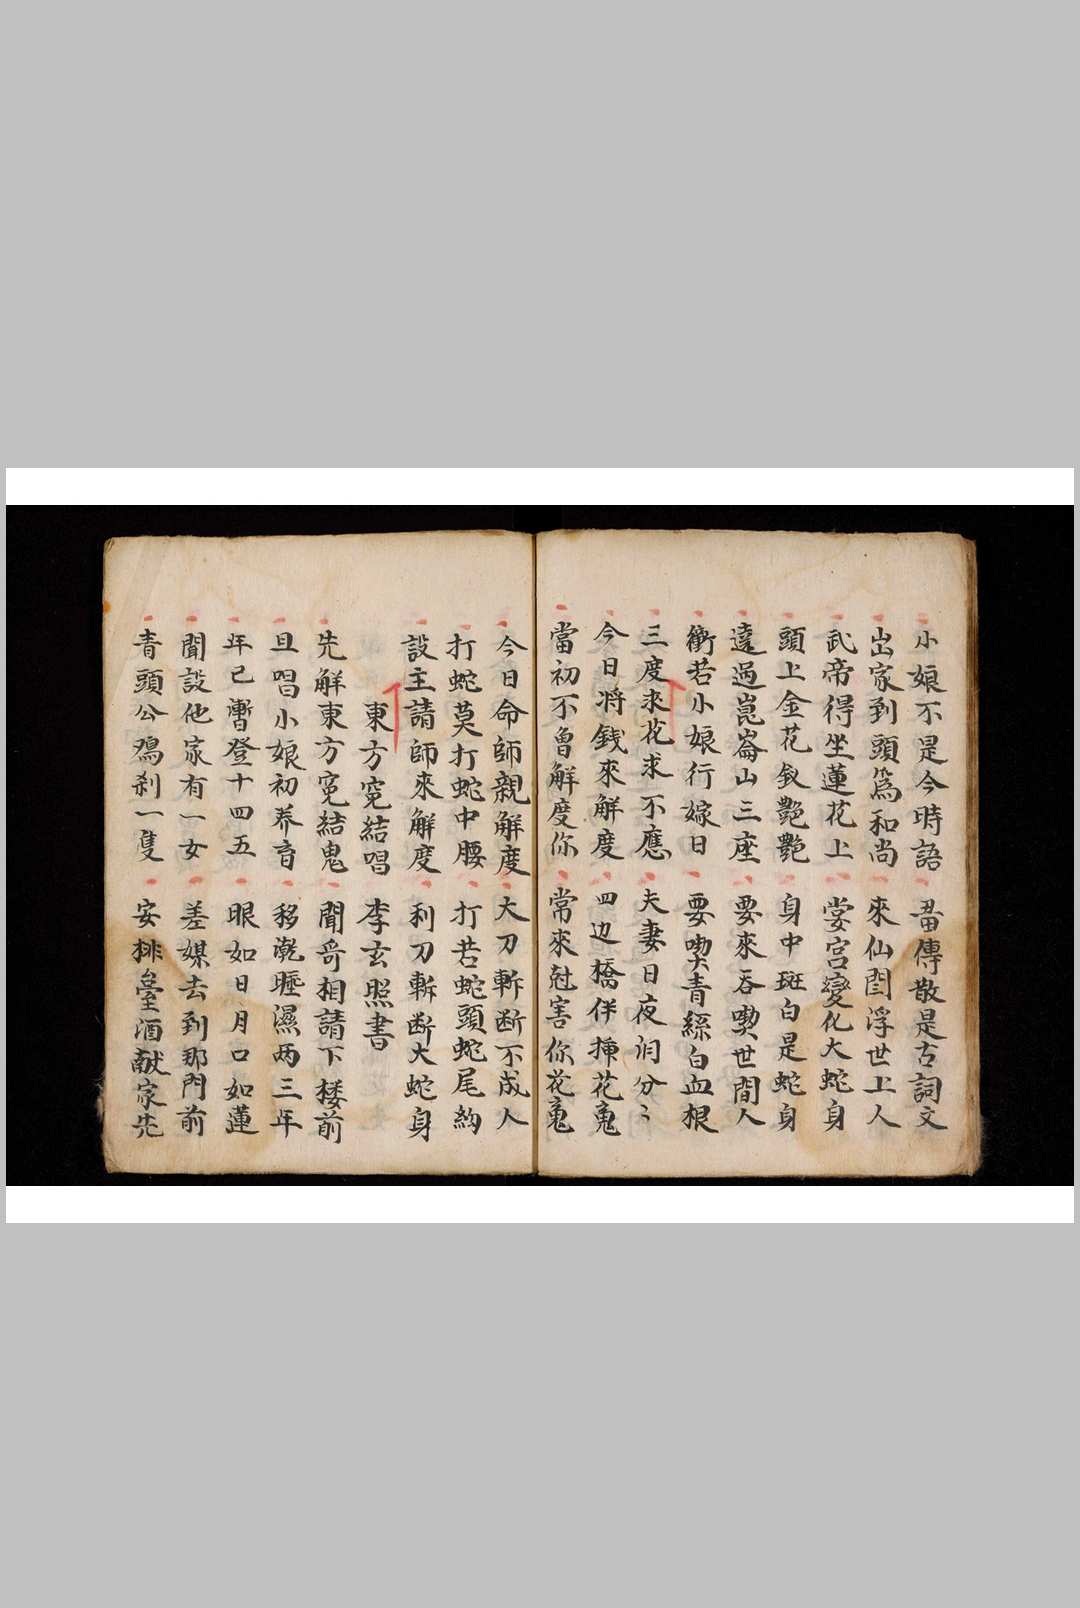 小娘不是今時語 畱傳散是古詞文
出家到頭爲和尚 來仙閻浮世上人
武帝得坐蓮花上 堂宮變化大蛇身
頭上金花釵艷艷 身中斑白是蛇身
遠過崑崙山三座 要來吞喫世間人
衝若小娘行嫁日 要喫青絲白血根
三度求花求不應 夫妻日夜泪分〻
今日将錢來解度 四边橋伴揷花䰟
當初不曾解度你 常來尅害你花䰟
今日命師親解度 大刀斬断不成人
打蛇莫打蛇中腰 打若蛇頭蛇尾約
設主請師來解度 利刀斬断大蛇身
東方寃結唱 李玄照書
先解東方寃結鬼 聞哥相請下楼前
且唱小娘初养育 移乾睡濕两三年
年已漸登十四五 眼如日月口如蓮
聞設他家有一女 差媒去到那門前
青頭公鳮刹一隻 安排臺酒献家先